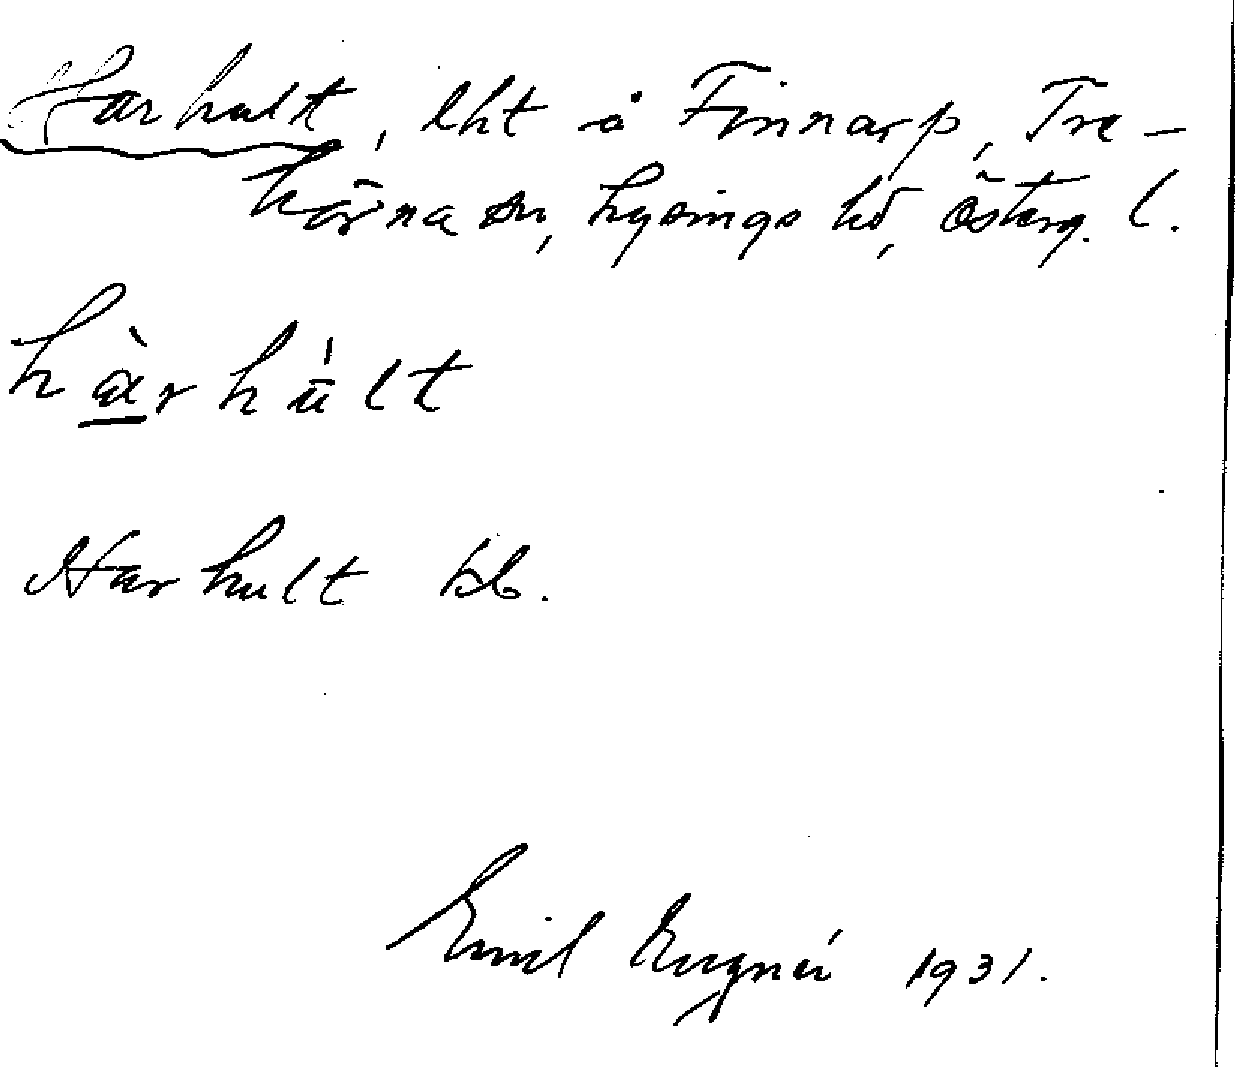 Harhult, lht å Finnarp, Tre-
hörna sn, Lysings hd, Österg. l.
hàrhúlt
Harhult kb.
Emil 1931.